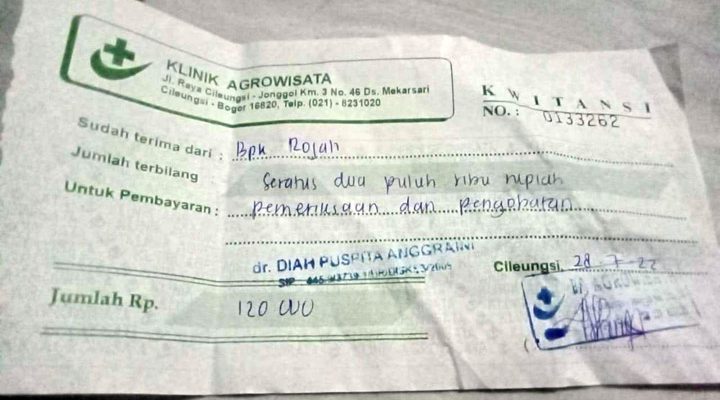 KLINIK AGROWISATA
Jl. Raya Cileungsi - Jonggol Km. 3 No. 46 Ds. Mekarsari
Cileungsi - Bogor 16820, Telp. (021) - 8231020
KWITANSI
NO. : 0133262
Sudah terima dari : Bpk Rojah
Jumlah terbilang Seratus dua puluh ribu rupiah
Untuk Pembayaran : Pemeriksaan dan Pengobatan
dr. DIAH PUSPITA ANGGRAINI
SIP
Cileungsi, 28-7-22
Jumlah Rp. 120 000